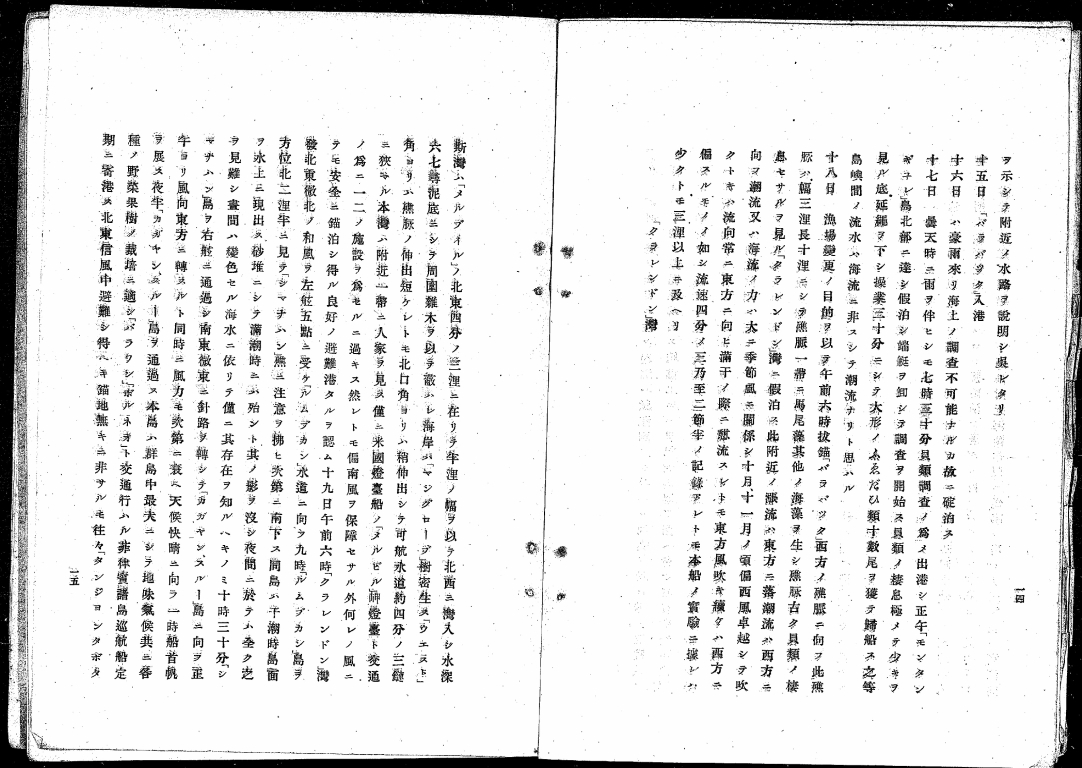 ヲ示シテ附近ノ水路ヲ說明シ呉レタリ
十五日「バラバツク」入港
十六日 ハ豪雨來リ海上ノ調査不可能ナルカ故ニ碇泊ス
十七日 曇天時ニ雨ヲ伴ヒシモ七時三十分貝類調査ノ爲メ出港シ正午「モンタン
ギユレ」島北部ニ達シ假泊シ端艇ヲ卸シテ調査ヲ開始ス貝類ノ棲息極メテ少キヲ
見ル底延繩ヲ下シ操業三十分ニシテ大形ノゑゑだひ類十數尾ヲ獲テ歸船ス之等
島嶼間ノ流水ハ海流ニ非スシテ潮流ナリト思ハル
十八日 漁場變更ノ目的ヲ以テ午前六時拔錨「バラバツク」西方ノ礁脈ニ向フ此礁
脈ハ幅三浬長十浬モシテ礁脈一帶ニ馬尾藻其他ノ海藻ヲ生シ礁脈古ク貝類ノ棲
息セサルヲ見「クラレンドン」灣ニ假泊ス此附近ノ漲流ハ東方ニ落潮流ハ西方ニ
向フ潮流又ハ海流ノ力ハ大ニ季節風ニ關係シ十月、十一月ノ頃偏西風卓越シテ吹
クトキハ流向常ニ東方ニ向ヒ滿干ノ際ニ憩流スレトモ東方風吹キ續クハ西方ニ
偏スルモノノ如シ流速四分ノ三乃至二節半ノ記錄アレトモ本船ノ實驗ニ據レハ
少クトモ三浬以上ニ及ヘリ
「クラレンドン」灣
一四
斯灣ハ「メルブイル」ノ北東四分ノ三浬ニ在リテ半浬ノ幅ヲ以テ北西ニ灣入シ水深
六七尋泥底ニシテ周圍雜木ヲ以テ蔽ハレ海岸ハ「マングローブ」樹密生ス「ウエスト」
角ヨリハ礁脈ノ伸出短ケレトモ北口角ヨリハ稍伸出シテ可航水道約四分ノ三鏈
ニ狹マル本灣ハ附近一帶ニ人家ヲ見ス僅ニ米國燈臺船ノ「メルビル」岬燈臺ト交通
ノ爲ニ一二ノ施設ヲ爲セルニ過キス然レトモ偏南風ヲ保障セサル外何レノ風ニ
テモ安全ニ錨泊シ得ル良好ノ避難港タルヲ認ム十九日午前六時「クラレンドン」灣
發北東微北ノ和風ヲ左舷五點ニ受ケ「ルムブカン」水道ニ向フ九時「ルムブカン」島ヲ
方位北二浬半ニ見テ「シマナハン」礁ニ注意ヲ拂ヒ次第ニ南下ス同島ハ干潮時島面
ヲ水上ニ現出ス砂堆ニシテ滿潮時ニハ殆ント其ノ影ヲ沒シ夜間ニ於テハ全ク之
ヲ見難シ晝間ハ變色セル海水ニ依リテ僅ニ其存在ヲ知ルヘキノミ十時三十分「シ
マナハン」島ヲ右舷ニ通過シ南東微東ニ針路ヲ轉シテ「カガヤンスルー」島ニ向フ正
午ヨリ風向東方ニ轉スルト同時ニ風力モ次第ニ衰ヘ天候快晴ニ向フ一時船首帆
ヲ展ス夜半「カガヤンスルー」島ヲ通過ス本島ハ群島中最大ニシテ地味氣候共ニ各
種ノ野菜果樹ノ栽培ニ適シ「パラワン」「ボルネオ」ト交通行ハル非律賓諸島巡航船定
期ニ寄港ス北東信風中避難シ得ヘキ錨地無キニ非サルモ往々「タンジヨンタボタ
一五